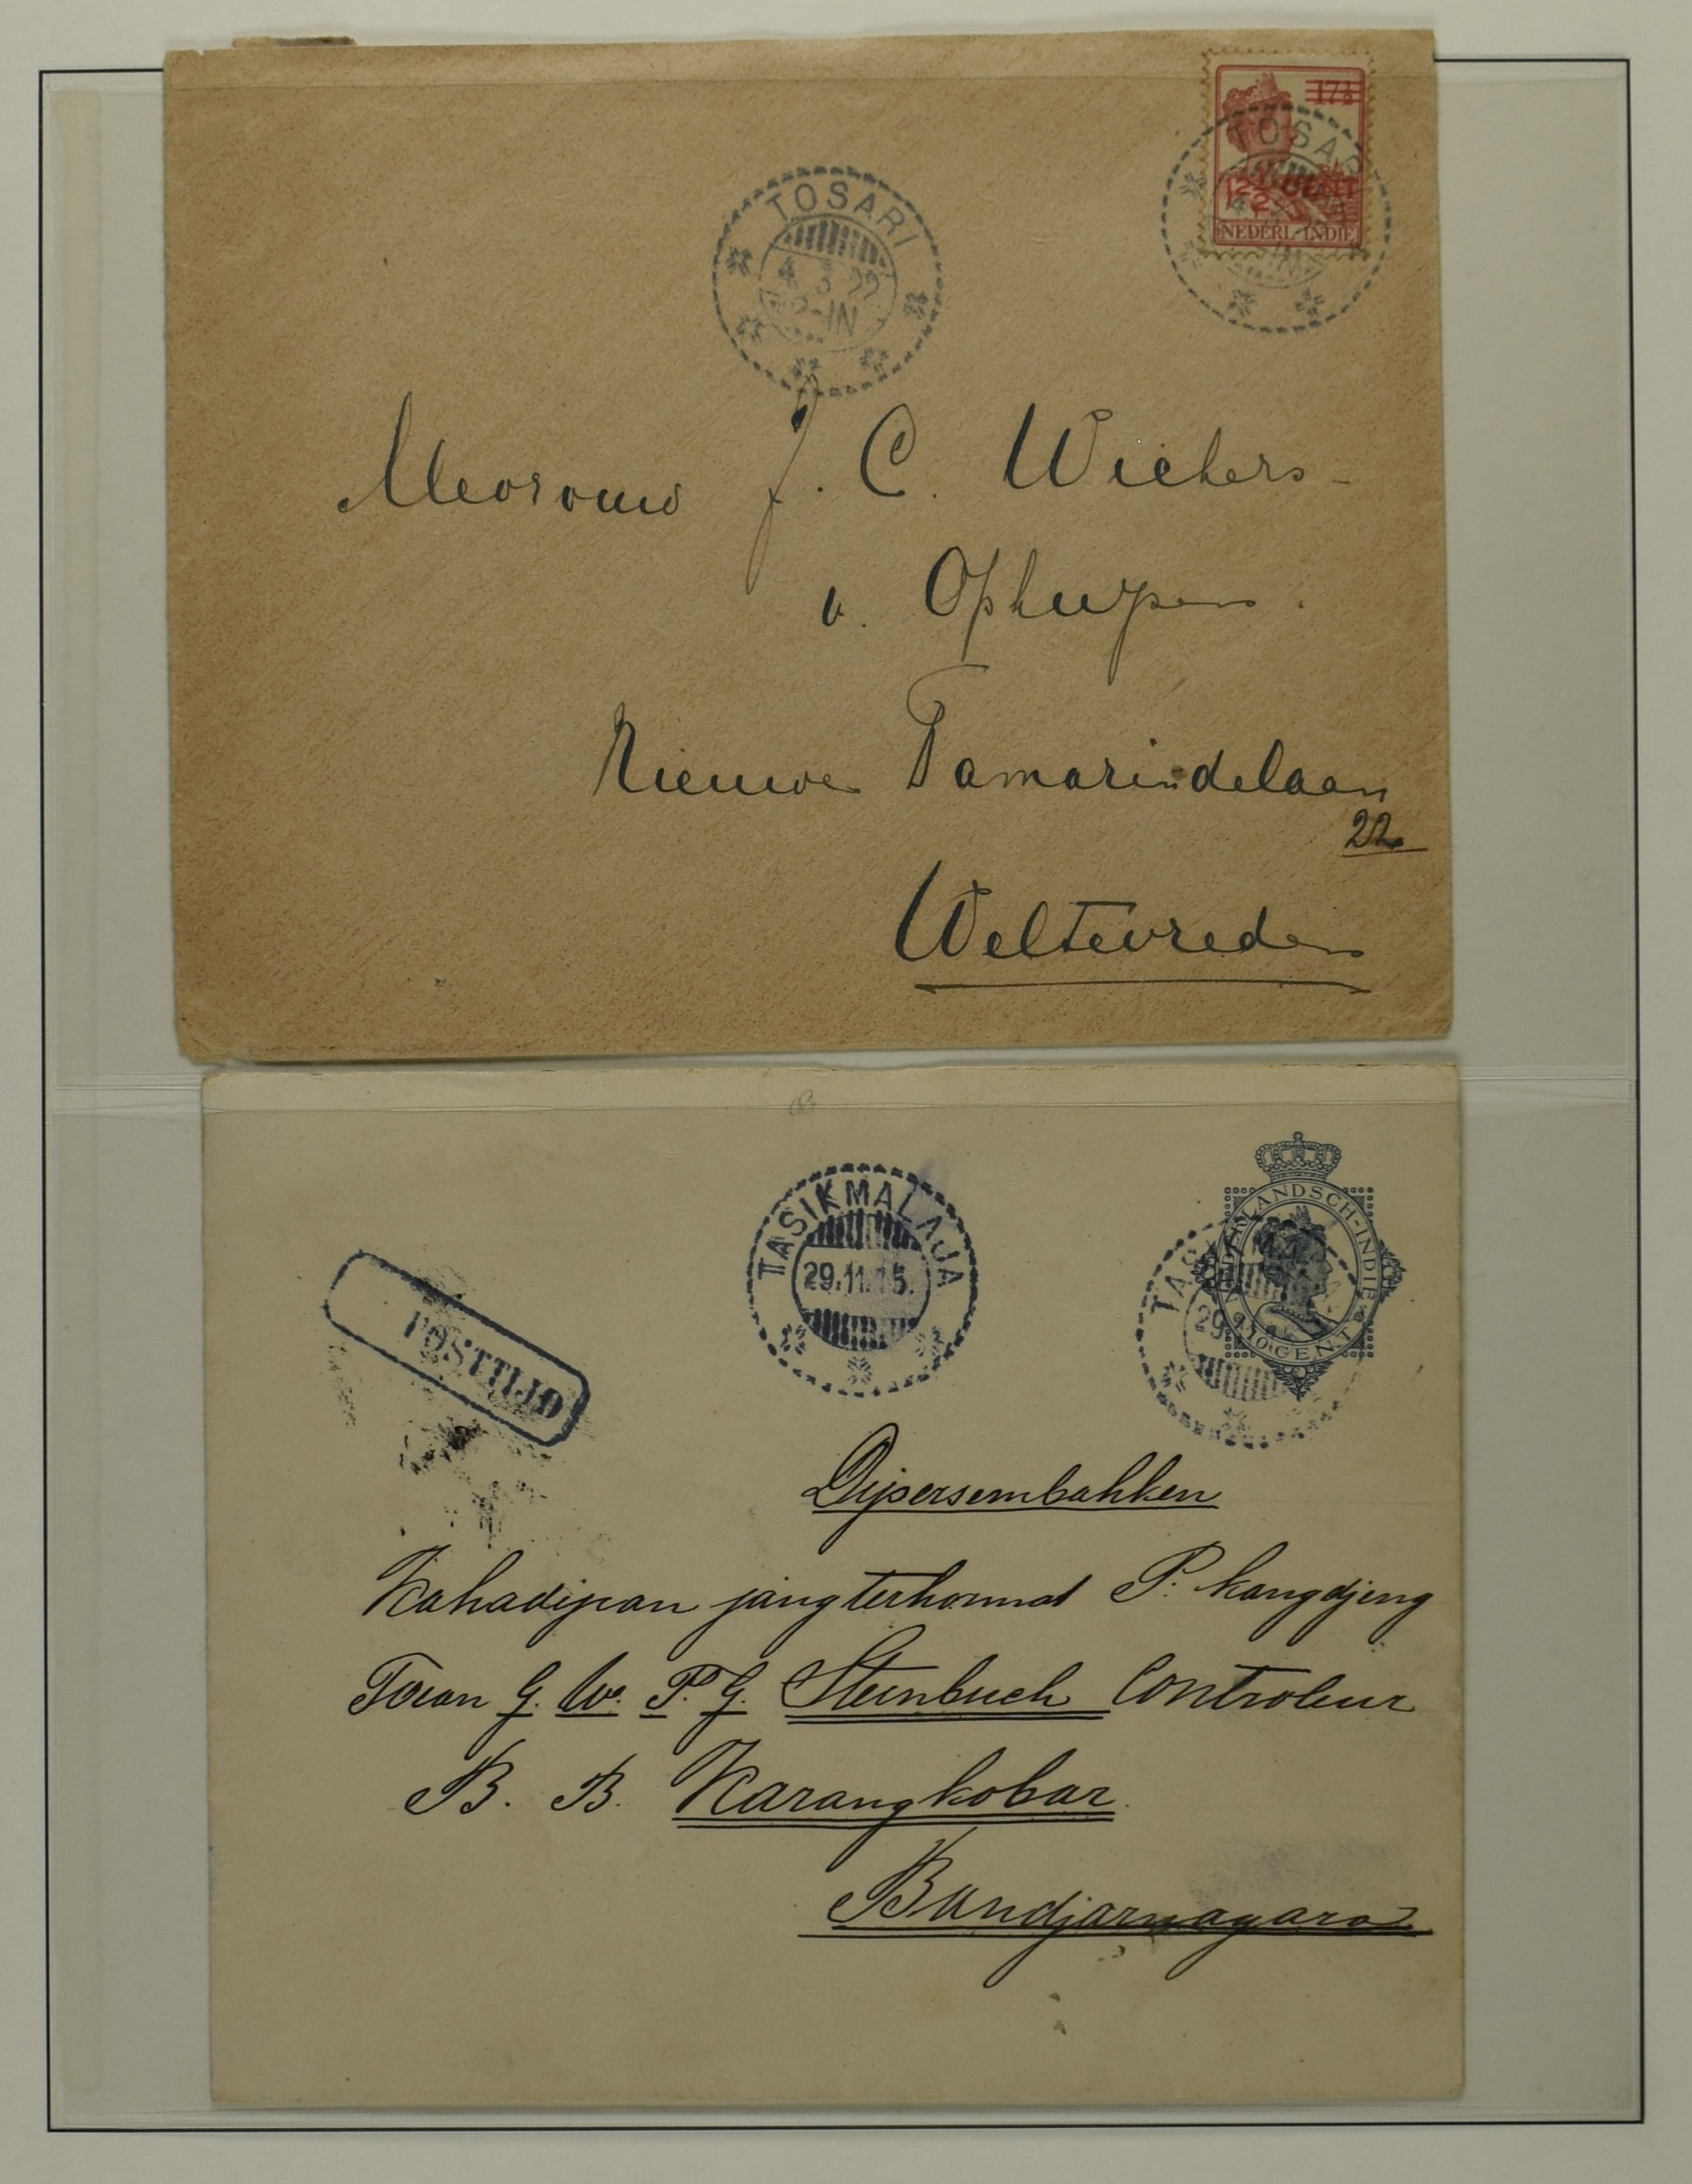 17½
12½ CENT
NEDERL-INDIE
TOSARI
TOSARI
4 3 22
-IN
Mevrouw J. C. Wichers-
v. Ophuysen.
Nieuwe Tamarindelaan
22
Weltevreden
TASIKMALAJA
29.11.15.
NEDERLANDSCH-INDIE
10 CENT
TASIKMA
29
POSTTIJD
Dipersembahken
Kahadipan jang terhormat P. kangdjeng
Toean G. W. P. G. Steinbuch Controleur
B. B. Karangkobar
Bandjarnagara